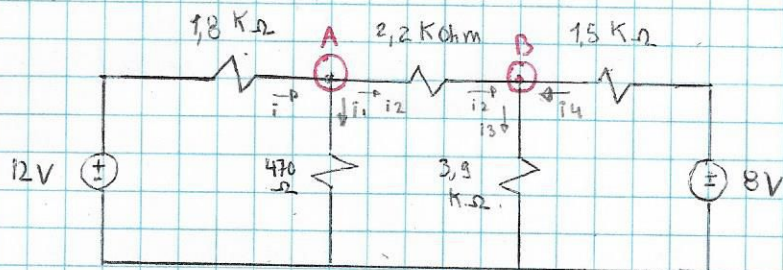 1,8 KΩ
A
2,2 KOhm
B
1,5 KΩ
i
i1
i2
i2
i3
i4
12V
470
Ω
3,9
KΩ
8V